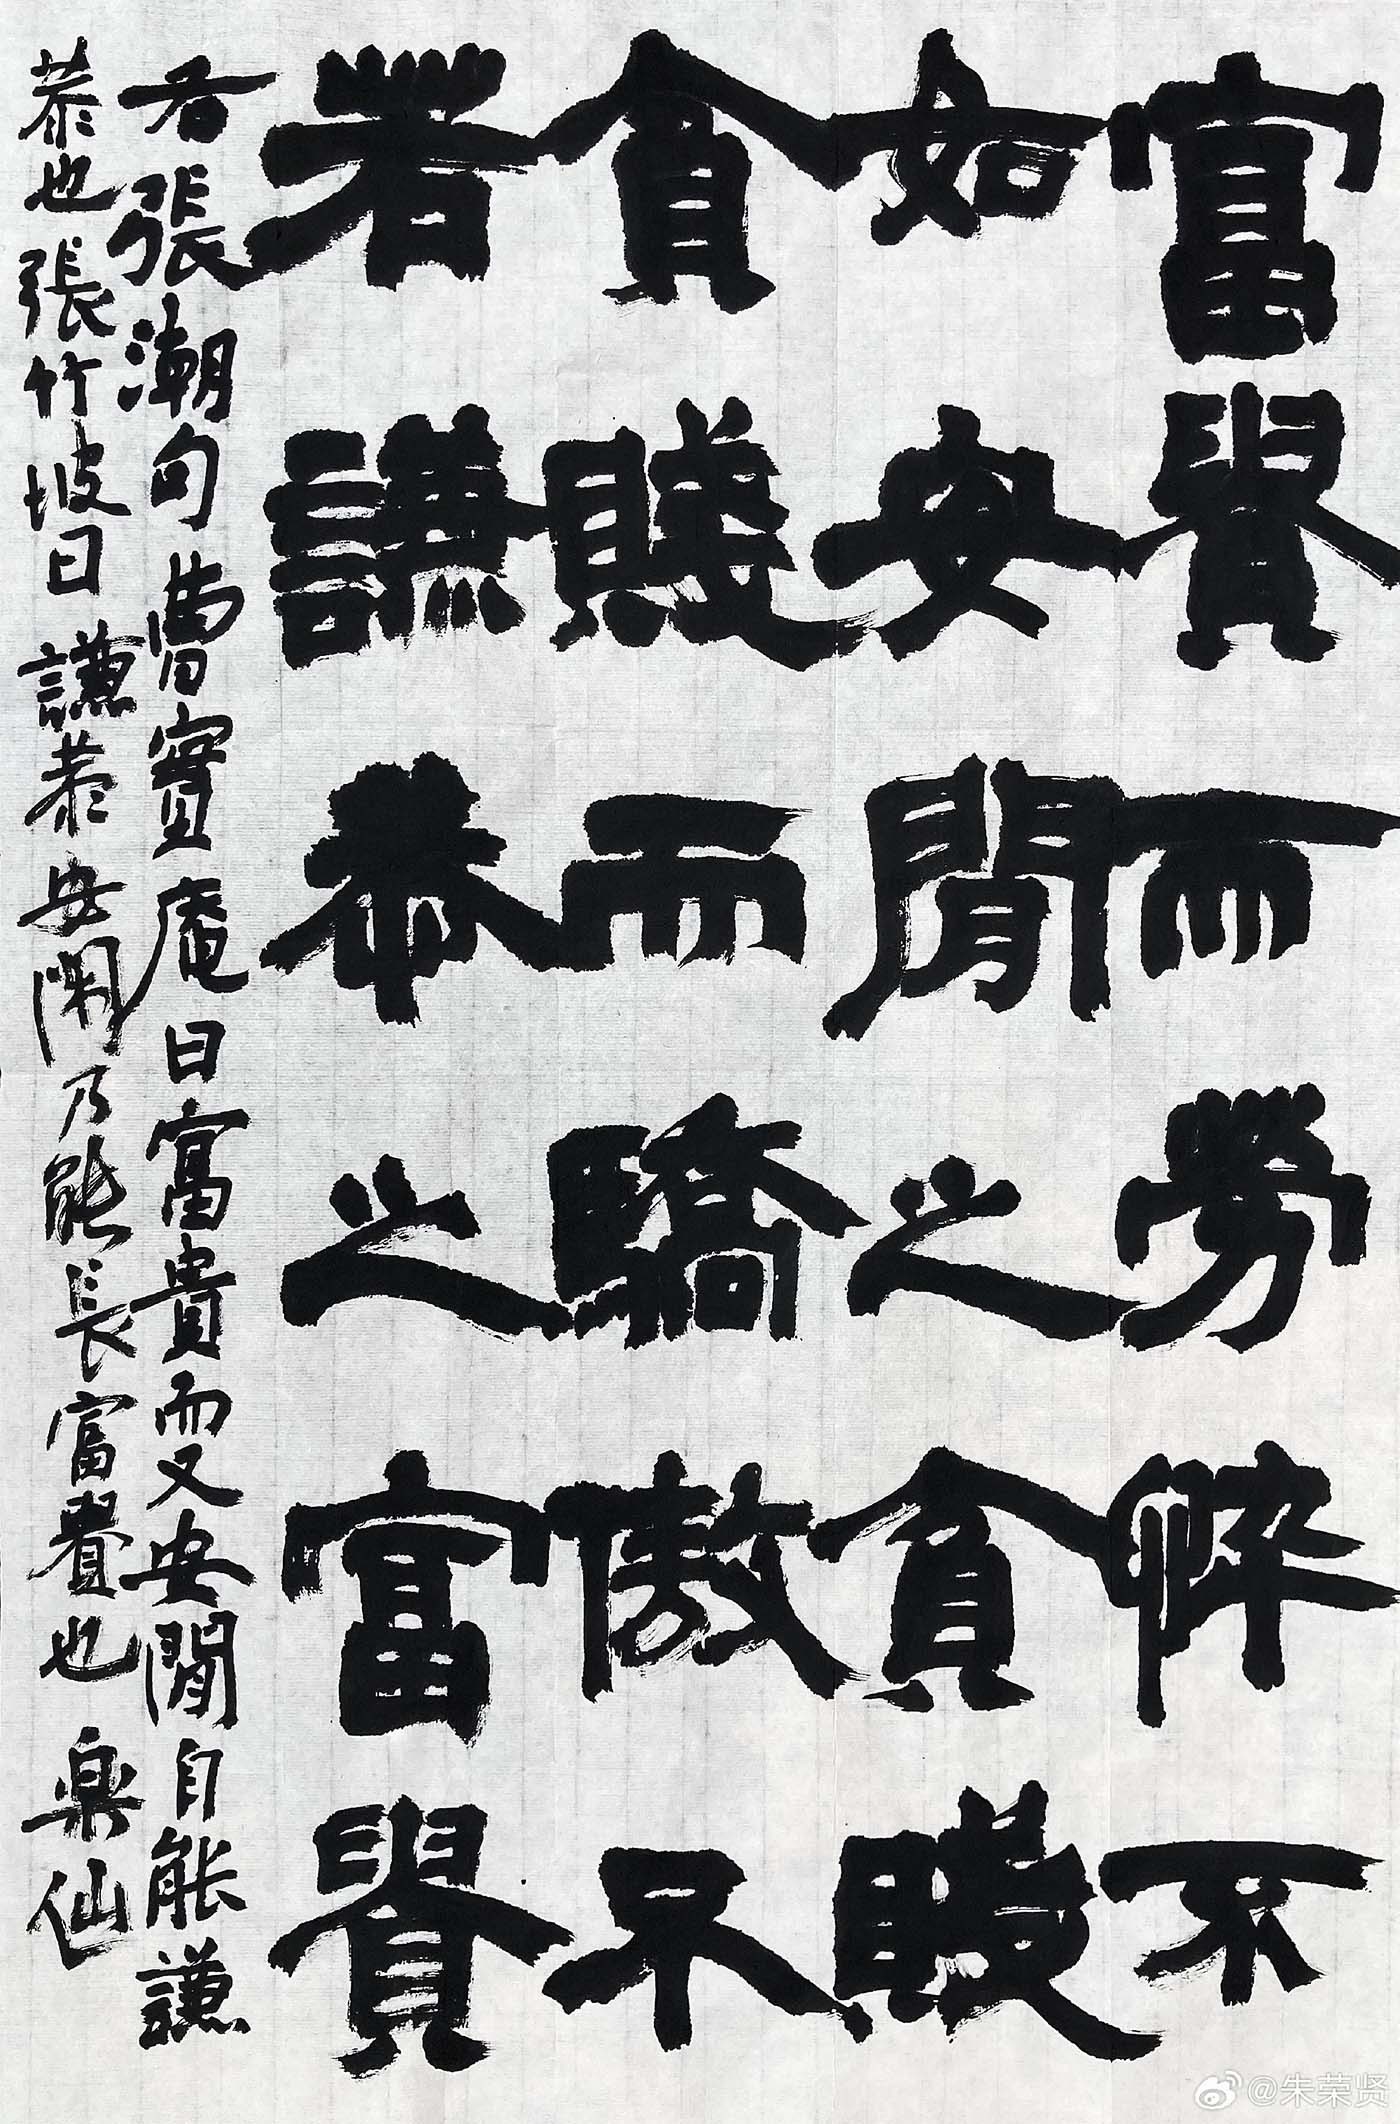 富貴而勞悴不
如安閒之貧賤
貧賤而驕傲不
若謙恭之富貴
右張潮句曹實庵曰富貴而又安閒自能謙
恭也張竹坡曰謙恭安閑乃能長富貴也 樂仙
@朱荣贤